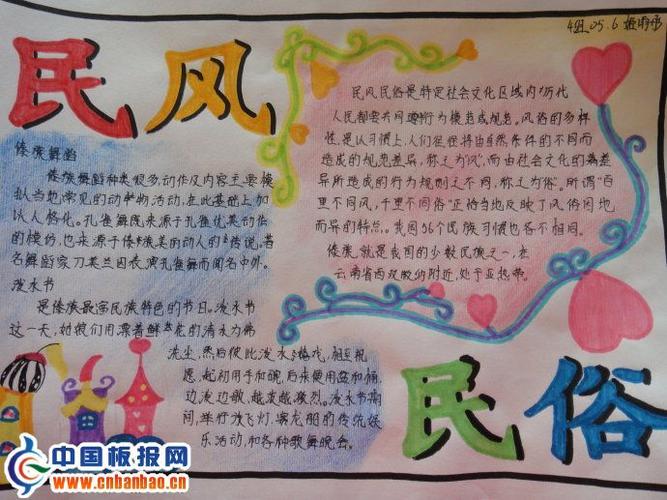 民风
4班 05.6
民风民俗是特定社会文化区域内历代
人民都要共同遵行为模范或规范。风俗的多样
性,是以习惯上,人们往往将由自然条件的不同而
造成的规范差异,称之为"风",而由社会文化的差
异所造成的行为规则之不同,称之为"俗"。所谓"百
里不同风,千里不同俗"正恰当地反映了风俗因地
而异的特点。我国56个民族习惯也各不相同。
傣族,就是我国的少数民族之一,在
云南省西双版纳附近,处于亚热带。
傣族舞蹈
傣族舞蹈种类很多,动作及内容主要模
拟当地常见的动物活动,在此基础上加
以人格化。孔雀舞既来源于孔雀优美动作
的模仿,也来源于傣族美丽动人的传说。著
名舞蹈家刀美兰因表演孔雀舞而闻名中外。
泼水节
是傣族最富民族特色的节日。泼水节
这一天,她们用漂着鲜花的清水为佛
洗尘,然后彼此泼水嬉戏,相互祝
愿。起初用手和碗,后来使用盆和桶,
边泼边歌,越泼越激烈。泼水节期
间,举行放飞灯、赛龙船的传统娱
乐活动,和各种歌舞晚会。
民俗
中国板报网
www.cnbanbao.cn